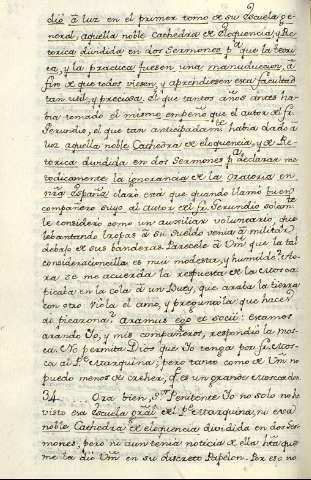 dió à luz en el primer tomo de su Escuela ge-
neral, aquella noble Cathedra de Eloquencia, y Re-
torica dividida en dos Sermones pª que la teori-
ca, y la practica fuesen una manuduccion, à
fin de que todos viesen, y aprendiesen esta facultad
tan util, y preciosa. El que tantos años antes ha-
bia tomado el mismo empeño que el autor de fr.
Gerundio, el que tan anticipadamte habia dado à
luz aquella noble Cathedra de eloquencia, y de Re-
torica dividida en dos Sermones pª declarar me-
todicamente la ignorancia de la Oratoria en
nrâ España, claro està que quando llamò buen
compañero suyo al autor de fr. Gerundio solamte
le considerò como un auxiliar voluntario, que
lebantando tropas à su sueldo venia à militar
debajo de sus banderas. Parecele à Vm que la tal
consideracioncilla es muy modesta, y humilde? Aho-
ra se me acuerda la respuesta de la Mosca
picada en la cola de un Buey, que araba la tierra
con otro. Viola el amo, y preguntòla que haces
ai picarona? Aramus ego et socii: estamos
arando Yo, y mis compañeros, respondiò la mos-
ca. No permita Dios que Yo tenga por fr. Mos-
ca al Pe. Marquina; pero tanto como de Vm no
puedo menos de creher, q. es un grande Moscardon.
34. . . . . Ora bien, Sr. Penitente Yo no solo no he
visto esa Escuela gral. del Pe. Marquina, ni esa
noble Cathedra de eloquencia dividida en dos Ser-
mones, pero ni aun tenia noticia de ella hta que
me la diò Vm en su discreto Papelon. Por eso no